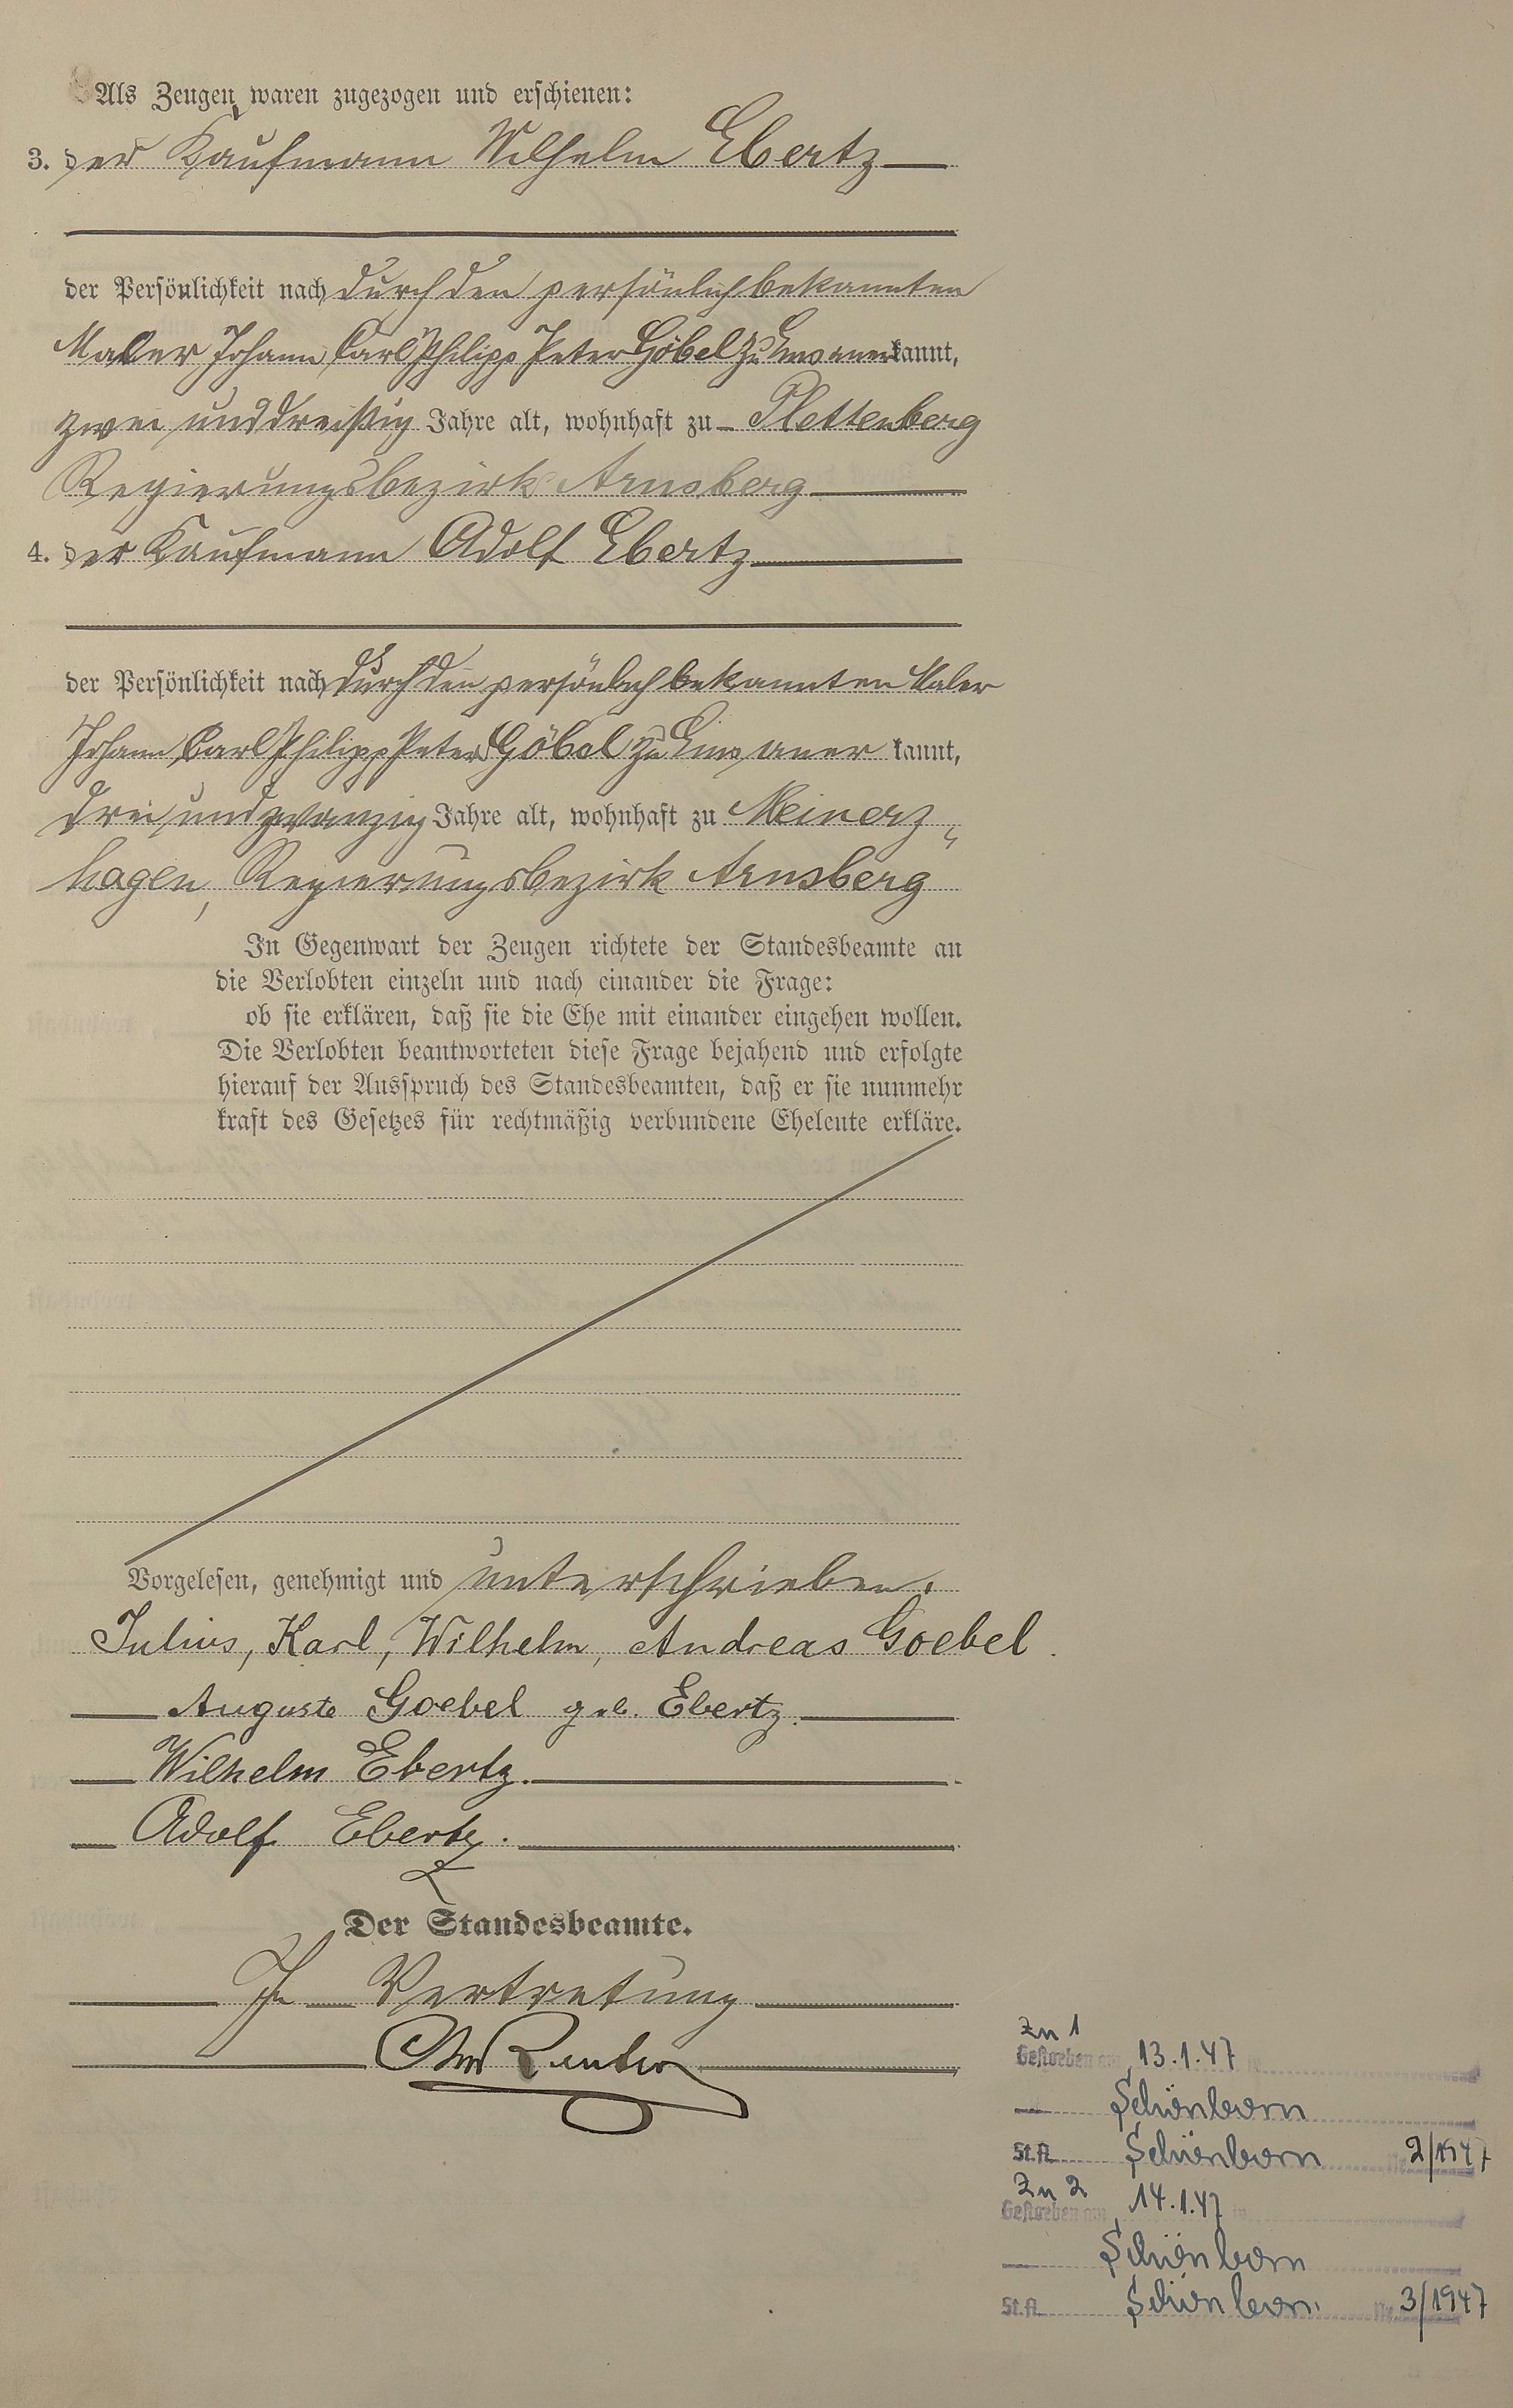 Als Zeugen waren zugezogen und erschienen:
3. der Kaufmann Wilhelm Ebertz
der Persönlichkeit nach durch den persönlich bekannten
Maler Johann Carl Philipp Peter Göbel zu Ems anerkannt,
zwei und dreißig Jahre alt, wohnhaft zu Plettenberg
Regierungsbezirk Arnsberg
4. der Kaufmann Adolf Ebertz
der Persönlichkeit nach durch den persönlich bekannten Maler
Johann Carl Philipp Peter Göbel zu Ems anerkannt,
drei und zwanzig Jahre alt, wohnhaft zu Meinerz-
hagen, Regierungsbezirk Arnsberg
In Gegenwart der Zeugen richtete der Standesbeamte an
die Verlobten einzeln und nach einander die Frage:
ob sie erklären, daß sie die Ehe mit einander eingehen wollen.
Die Verlobten beantworteten diese Frage bejahend und erfolgte
hierauf der Ausspruch des Standesbeamten, daß er sie nunmehr
kraft des Gesetzes für rechtmäßig verbundene Eheleute erkläre.
Vorgelesen, genehmigt und unterschrieben.
Julius, Karl, Wilhelm, Andreas Goebel.
Auguste Goebel geb. Ebertz.
Wilhelm Ebertz.
Adolf Ebertz.
Der Standesbeamte.
In Vertretung
Zu 1
Gestorben am 13.1.47 in
Schönborn
St.A. Schönborn Nr. 2/1947
Zu 2
Gestorben am 14.1.47 in
Schönborn
St.A. Schönborn Nr. 3/1947